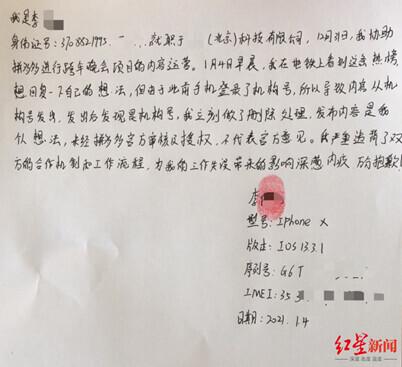 我是李
身份证号:3708821993 就职于 (北京)科技有限公司,12月31日,我协助
拼多多进行跨年晚会项目的内容运营,1月4日早晨,我在地铁上看到这条热榜
想回复一下自己的想法,但由于此前手机登录了机构号,所以导致内容从机
构号发出,发出后发现是机构号,我立刻做了删除处理,发布内容是我
个人想法,未经拼多多官方审核及授权,不代表官方意见。我严重违背了双
方的合作机制和工作流程,为我的工作失误带来的影响深感内疚,万分抱歉!
李
型号:Iphone X
版本:IOS 13.3.1
序列号:G6T
IMEI:35
日期:2021.1.4
红星新闻
深度 态度 温度